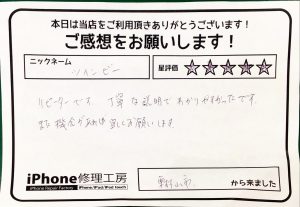 本日は当店をご利用頂きありがとうございます!
ご感想をお願いします!
ニックネーム
ツインビー
星評価 ★★★★★
リピーターです。丁寧な説明でわかりやすかったです。
また機会があれば宜しくお願いします。
iPhone修理工房
iPhone Repair Factory iPhone/iPad/iPod touch
から来ました